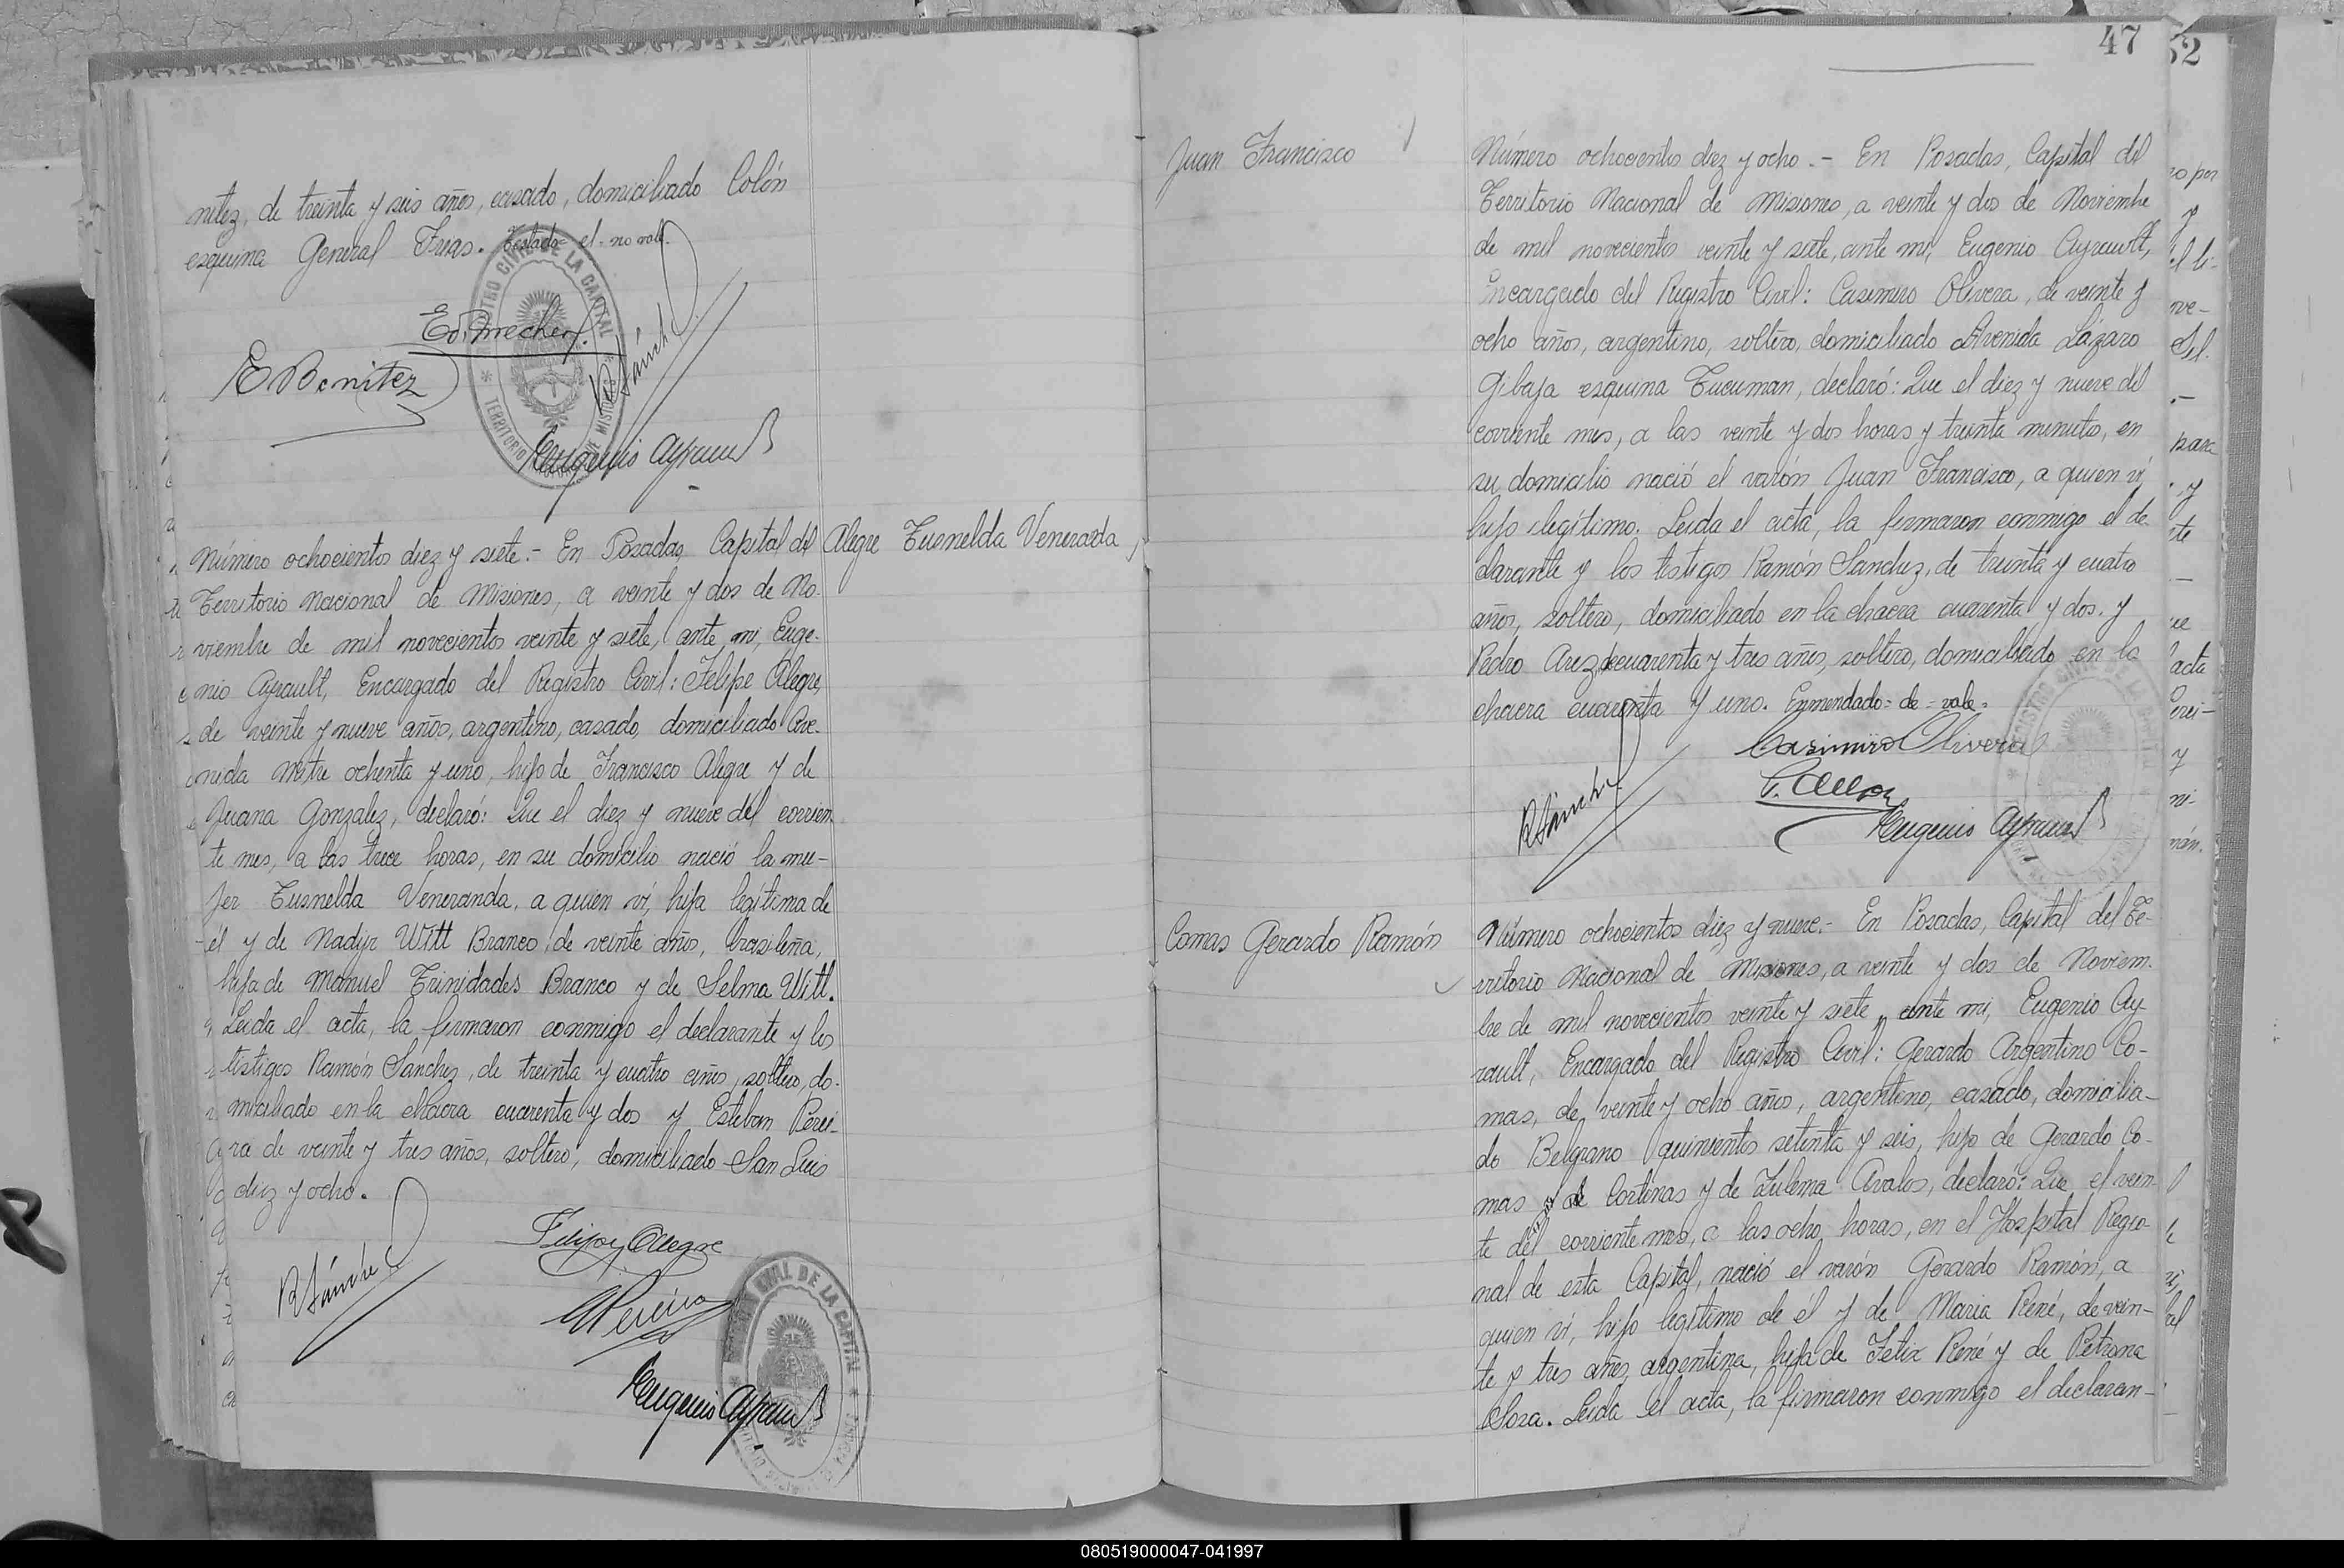 nitez, de treinta y seis años, casado, domiciliado Colón
esquina General Frias. Testado= el= no vale.
E Benitez
RSánchez
Eugenio Ayrault
REGISTRO CIVIL DE LA CAPITAL
TERRITORIO NACIONAL DE MISIONES
Alegre Tusnelda Veneranda
Número ochocientos diez y siete.- En Posadas, Capital del
Territorio Nacional de Misiones, a veinte y dos de No-
viembre de mil novecientos veinte y siete, ante mi, Euge-
nio Ayrault, Encargado del Registro Civil: Felipe Alegre,
de veinte y nueve años, argentino, casado, domiciliado Ave-
nida Mitre ochenta y uno, hijo de Francisco Alegre y de
Juana Gonzalez, declaró: Que el diez y nueve del corrien-
te mes, a las trece horas, en su domicilio nació la mu-
jer Tusnelda Veneranda, a quien vi, hija legítima de
él y de Nadyr Witt Branco, de veinte años, brasileña,
hija de Manuel Trinidades Branco y de Selma Witt.
Leida el acta, la firmaron conmigo el declarante y los
testigos Ramón Sánchez, de treinta y cuatro años, soltero, do-
miciliado en la chacra cuarenta y dos y Esteban Perei-
ra de veinte y tres años, soltero, domiciliado San Luis
diez y ocho.
RSánchez
Felipe Alegre
EPereira
Eugenio Ayrault
47
52
Juan Francisco
Número ochocientos diez y ocho.- En Posadas, Capital del
Territorio Nacional de Misiones, a veinte y dos de Noviembre
de mil novecientos veinte y siete, ante mi, Eugenio Ayrault,
Encargado del Registro Civil: Casimiro Olivera, de veinte y
ocho años, argentino, soltero, domiciliado Avenida Lázaro
Gibaja esquina Tucuman, declaró: Que el diez y nueve del
corriente mes, a las veinte y dos horas y treinta minutos, en
su domicilio nació el varón Juan Francisco, a quien vi,
hijo ilegítimo. Leida el acta, la firmaron conmigo el de-
clarante y los testigos Ramón Sanchez, de treinta y cuatro
años, soltero, domiciliado en la chacra cuarenta y dos. y
Pedro Arez, de cuarenta y tres años, soltero, domiciliado en la
chacra cuarenta y uno. Enmendado= de = vale=
Casimiro Olivera
RSánchez
Eugenio Ayrault
Comas Gerardo Ramón
Número ochocientos diez y nueve.- En Posadas, Capital del Te-
rritorio Nacional de Misiones, a veinte y dos de Noviem-
bre de mil novecientos veinte y siete, ante mi, Eugenio Ay-
rault, Encargado del Registro Civil: Gerardo Argentino Co-
mas, de veinte y ocho años, argentino, casado, domicilia-
do Belgrano quinientos setenta y seis, hijo de Gerardo Co-
mas y de Cortinas y de Zulema Avalos, declaró: Que el vein-
te del corriente mes, a las ocho horas, en el Hospital Regio-
nal de esta Capital, nació el varón Gerardo Ramón, a
quien vi, hijo legítimo de él y de Maria René, de vein-
te y tres años, argentina, hija de Felix René y de Petrona
Sosa. Leida el acta, la firmaron conmigo el declaran-
080519000047-041997